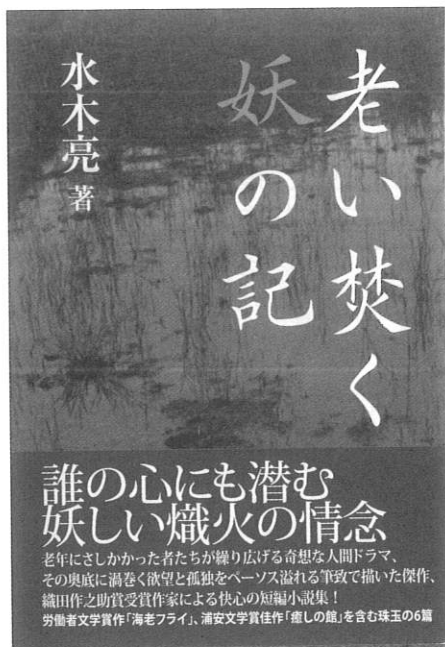 老い焚く
妖の記
水木亮 著
誰の心にも潜む
妖しい熾火の情念
老年にさしかかった者たちが繰り広げる奇想な人間ドラマ、
その奥底に渦巻く欲望と孤独をペーソス溢れる筆致で描いた傑作、
織田作之助賞受賞作家による快心の短編小説集！
労働者文学賞作「海老フライ」、浦安文学賞佳作「癒しの館」を含む珠玉の6篇